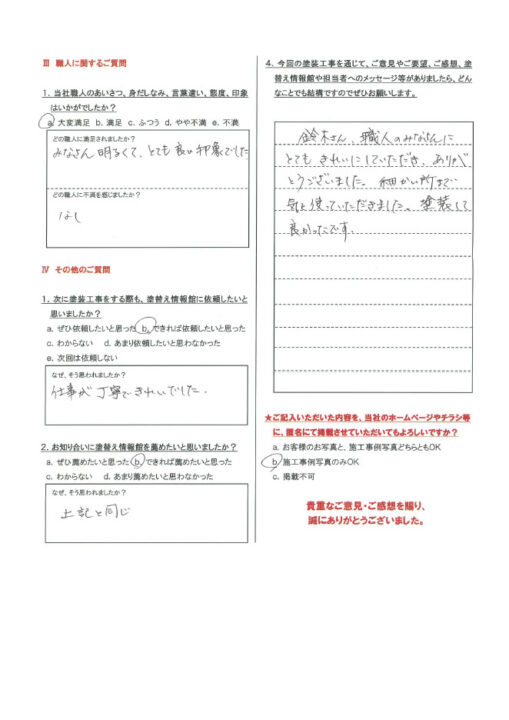 Ⅲ 職人に関するご質問
1. 当社職人のあいさつ、身だしなみ、言葉遣い、態度、印象
はいかがでしたか?
a. 大変満足 b. 満足 c. ふつう d. やや不満 e. 不満
どの職人に満足されましたか?
みなさん 明るくて、とても良い印象でした
どの職人に不満を感じましたか?
なし
Ⅳ その他のご質問
1. 次に塗装工事をする際も、塗替え情報館に依頼したいと
思いましたか?
a. ぜひ依頼したいと思った b. できれば依頼したいと思った
c. わからない d. あまり依頼したいと思わなかった
e. 次回は依頼しない
なぜ、そう思われましたか?
仕事が丁寧できれいでした.
2. お知り合いに塗替え情報館を薦めたいと思いましたか?
a. ぜひ薦めたいと思った b. できれば薦めたいと思った
c. わからない d. あまり薦めたいと思わなかった
なぜ、そう思われましたか?
上記と同じ
4. 今回の塗装工事を通じて、ご意見やご要望、ご感想、塗
替え情報館や担当者へのメッセージ等がありましたら、どん
なことでも結構ですのでぜひお願いします。
鈴木さん、職人のみなさんに
とても きれいにしていただき、ありが
とうございました。細かい所まで
気を使っていただきました。塗装して
良かったです.
★ご記入いただいた内容を、当社のホームページやチラシ等
に、匿名にて掲載させていただいてもよろしいですか?
a. お客様のお写真と、施工事例写真どちらともOK
b. 施工事例写真のみOK
c. 掲載不可
貴重なご意見・ご感想を賜り、
誠にありがとうございました。